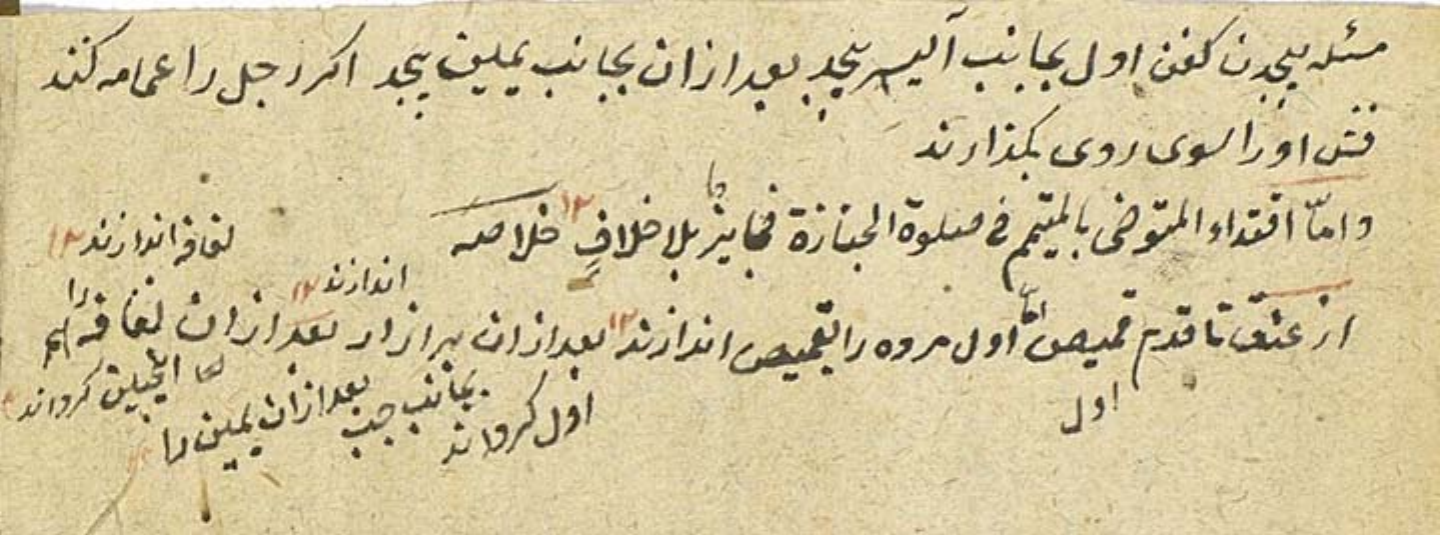 مسئله پیچدن کفن اول بجانب آلیسر پیچد بعد ازان بجانب یمین پیچد اکر رجل را عمامه کنند
فش او را بسوی روی بکذارند
وامّا اقتداء المتوضی بالمتیمم فی صلوة الجنازة فجایز بلا خلافٍ ۱۲ خلاصه
لفافه اندازند ۱۲
اندازند ۱۲
از عنق تا قدم قمیص امّا اول مرده را بقمیص اندازند ۱۲ بعد ازان بر ازار بعد ازان لفافه را
اول
اول کرداند
بجانب چپ
بعد ازان یمین
کرداند